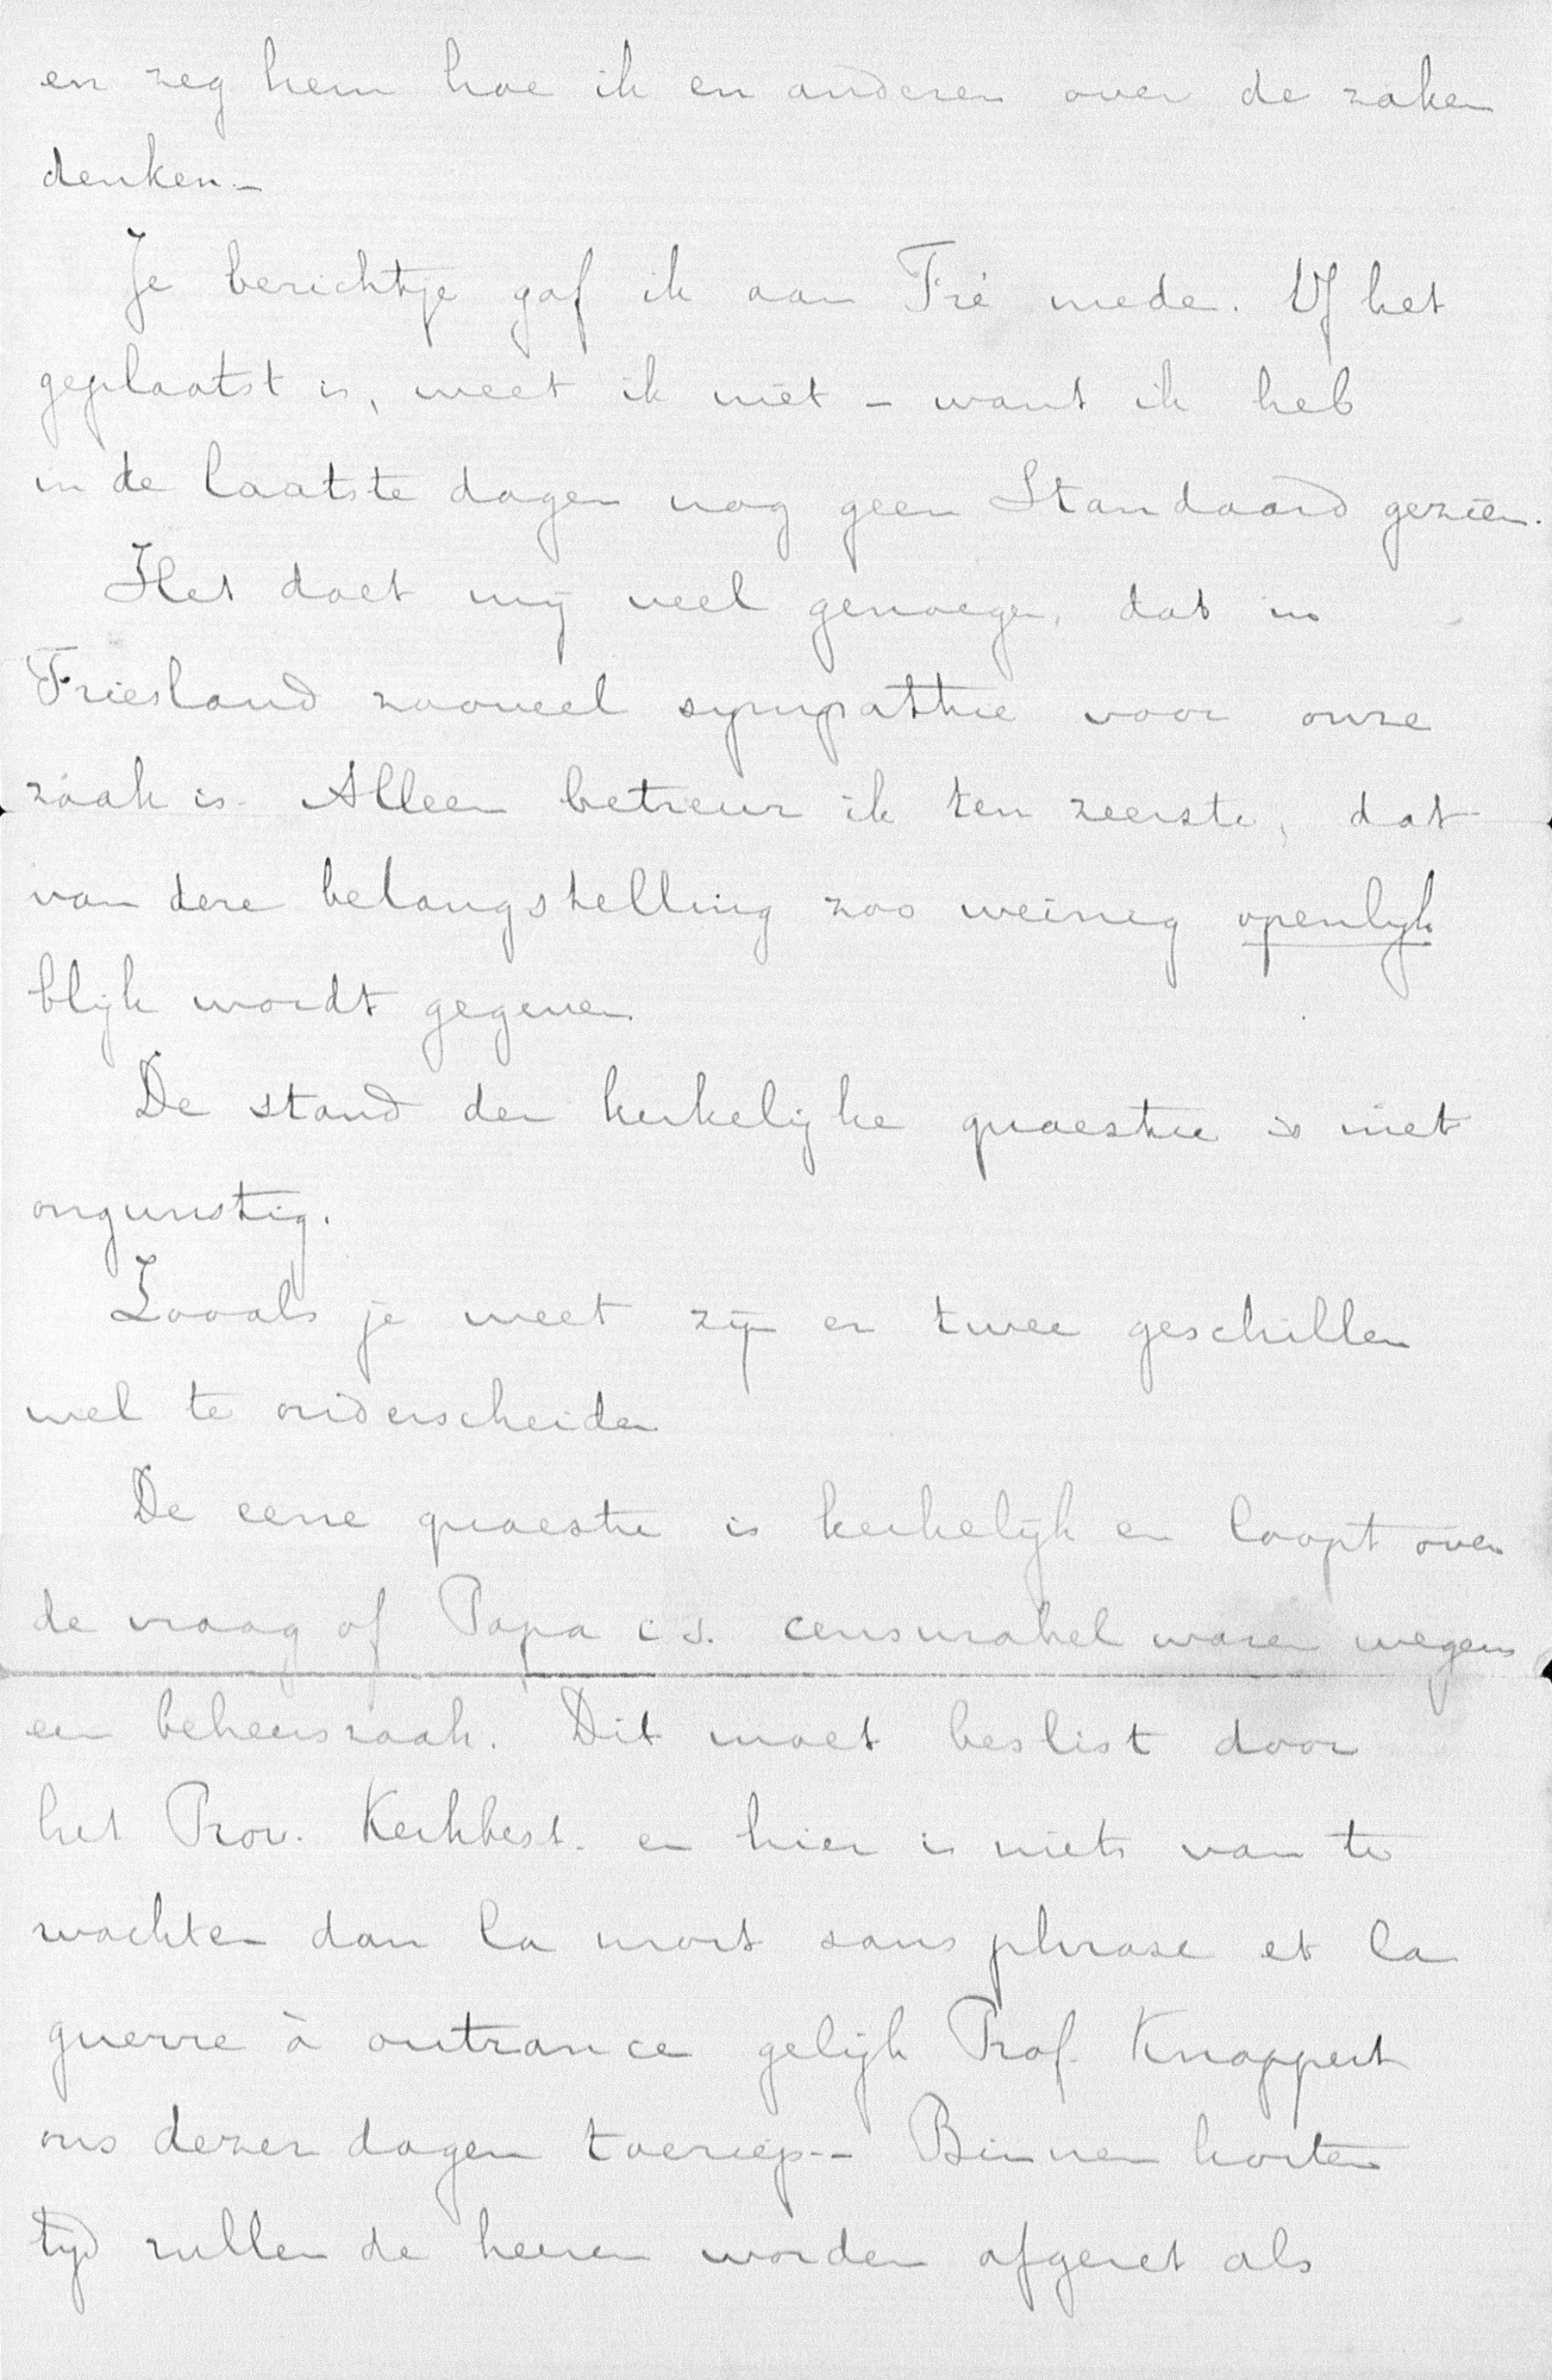 en zeg hem hoe ik en anderen over de zaken
denken –
Je berichtje gaf ik aan Fré mede. Of het
geplaatst is, weet ik niet – want ik heb
in de laatste dagen nog geen Standaard gezien.
Het doet mij veel genoegen, dat in
Friesland zooveel sympathie voor onze
zaak is. Alleen betreur ik ten zeerste, dat
van deze belangstelling zoo weinig openlijk
blijk wordt gegeven
De stand der kerkelijke quaestie is niet
ongunstig.
Zooals je weet zijn er twee geschillen
wel te onderscheiden
De eene quaestie is kerkelijk en loopt over
de vraag of Papa c.s. censurabel waren wegens
een beheerszaak. Dit moet beslist door
het Prov. Kerkbest. en hier is niets van te
wachten dan la mort sans phrase et la
guerre à outrance gelijk Prof. Knappert
ons dezer dagen toeriep -- Binnen korten
tijd zullen de heeren worden afgezet als